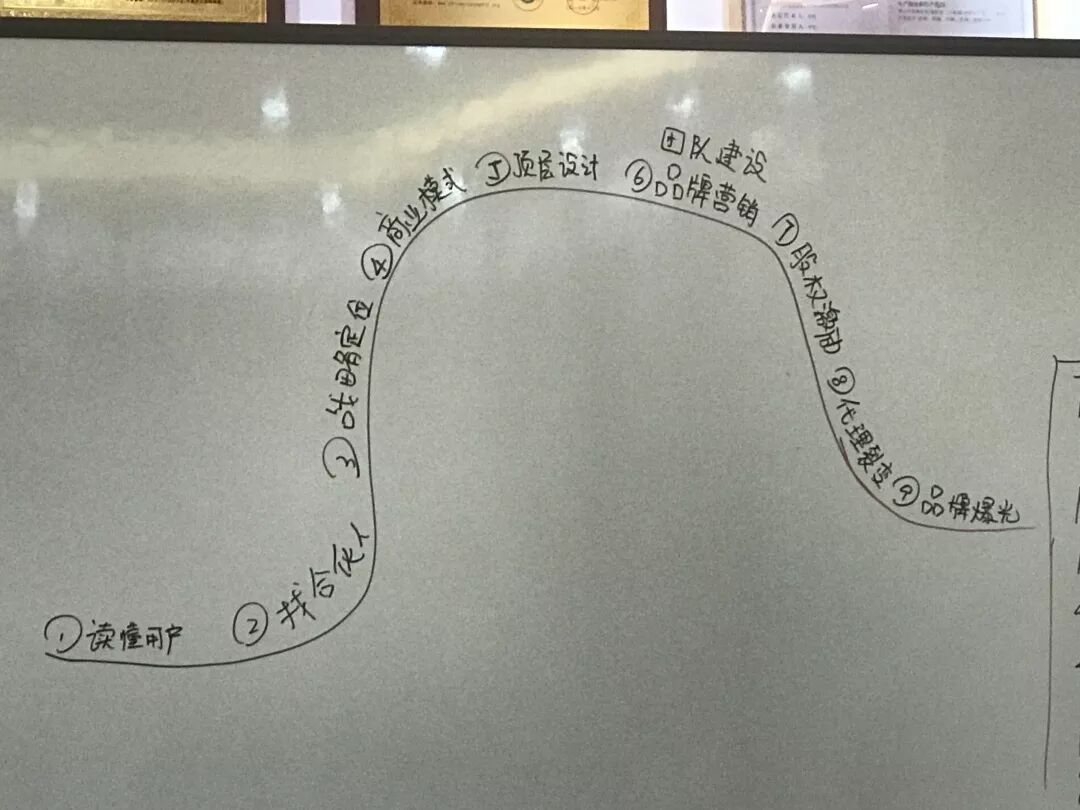 ①读懂用户
②找合伙人
③战略定位
④商业模式
⑤顶层设计
团队建设
⑥品牌营销
⑦股权激励
⑧代理裂变
⑨品牌爆光